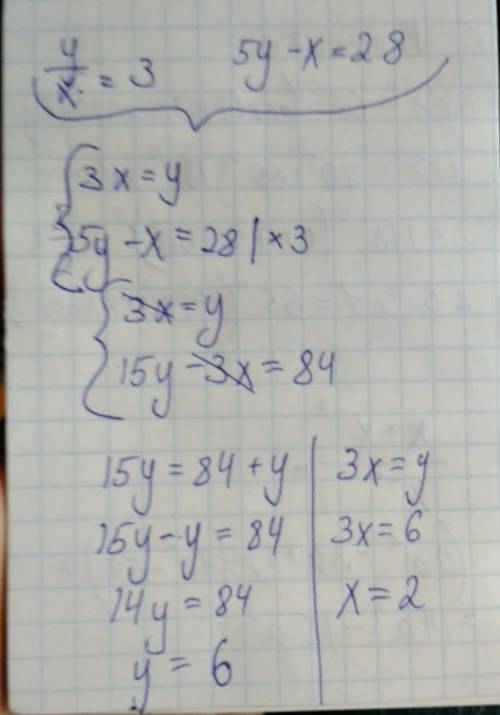 y/x = 3 5y - x = 28
3x = y
5y - x = 28 | × 3
3x = y
15y - 3x = 84
15y = 84 + y | 3x = y
15y - y = 84 | 3x = 6
14y = 84 | x = 2
y = 6